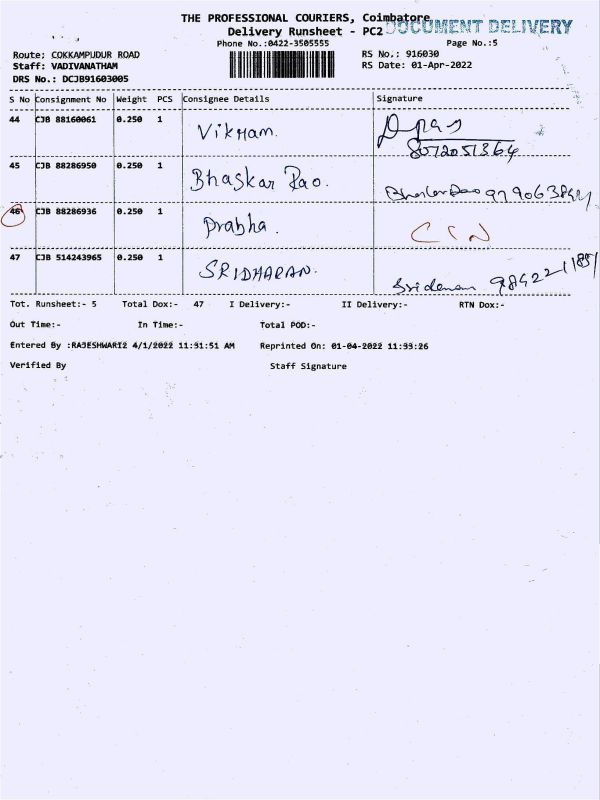 THE PROFESSIONAL COURIERS, Coimbatore
DOCUMENT DELIVERY
Delivery Runsheet - PC2
Phone No.:0422-3505555 Page No.:5
Route: COKKAMPUDUR ROAD RS No.: 916030
Staff: VADIVANATHAM RS Date: 01-Apr-2022
DRS No.: DCJB91603005
S No Consignment No Weight PCS Consignee Details Signature
44 CJB 88160061 0.250 1 Vikram. 8072051364
45 CJB 88286950 0.250 1 Bhaskar Rao. Bhaskar Rao
46 CJB 88286936 0.250 1 Prabha.
47 CJB 514243965 0.250 1 SRIDHARAN.
Tot. Runsheet:- 5 Total Dox:- 47 I Delivery:- II Delivery:- RTN Dox:-
Out Time:- In Time:- Total POD:-
Entered By :RAJESHWARI2 4/1/2022 11:31:51 AM Reprinted On: 01-04-2022 11:33:26
Verified By Staff Signature